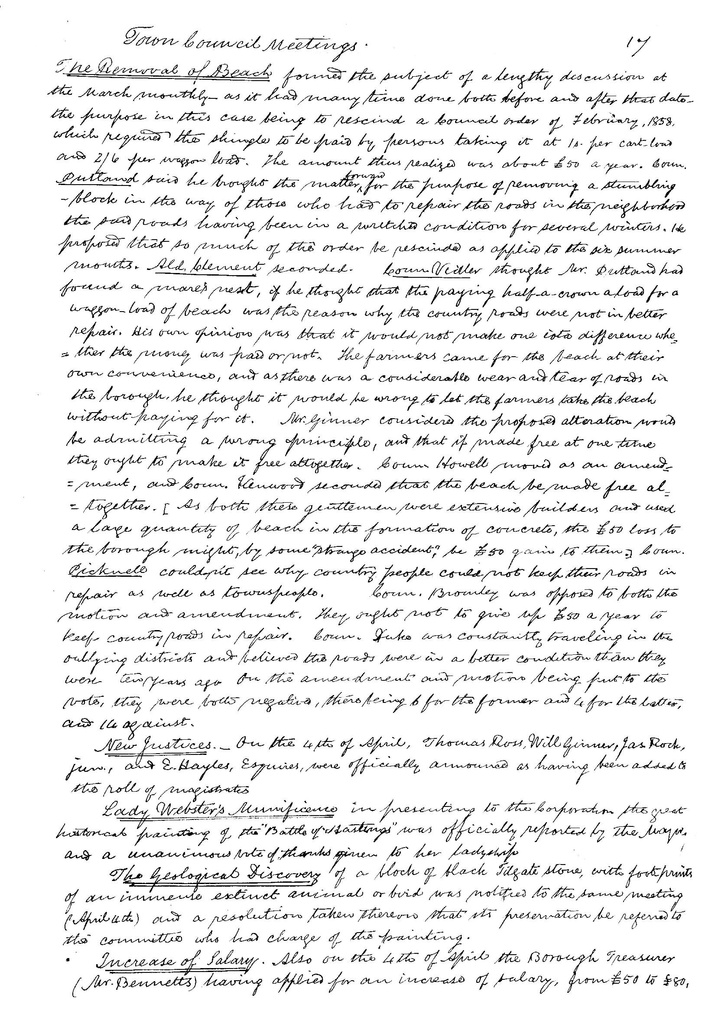 Town Council Meetings. 17
The Removal of Beach formed the subject of a lengthy discussion at
the March monthly - as it had many time done both before and after that date -
the purpose in this case being to rescind a Council order of February, 1858,
which required the shingle to be paid by persons taking it at 1s. per cart-load
and 2/6 per waggon load. The amount thus realized was about £50 a year. Coun.
Putland said he brought the matter forward for the purpose of removing a stumbling
-block in the way of those who had to repair the roads in the neighborhood
the said roads having been in a wretched condition for several winters. He
proposed that so much of the order be rescinded as applied to the six summer
months. Ald. Clement seconded. Coun. Vidler thought Mr. Putland had
found a mare's nest, if he thought that the paying half-a-crown a load for a
waggon-load of beach was the reason why the country roads were not in better
repair. His own opinion was that it would not make one iota difference whe=
=ther the money was paid or not. The farmers came for the beach at their
own convenience, and as there was a considerable wear and tear of roads in
the borough, he thought it would be wrong to let the farmers take the beach
without paying for it. Mr. Ginner considered the proposed alteration would
be admitting a wrong principle, and that if made free at one time
they ought to make it free altogether. Coun. Howell moved as an amend=
=ment, and Coun. Kenwood seconded that the beach be made free al=
=together. [As both these gentlemen were extensive builders and used
a large quantity of beach in the formation of concrete, the £50 loss to
the borough might, by some "strange accident", be £50 gain to them.] Coun.
Picknell couldn't see why country people could not keep their roads in
repair as well as townspeople. Coun. Bromley was opposed to both the
motion and amendment. They ought not to give up £50 a year to
keep country roads in repair. Coun. Duke was constantly traveling in the
outlying districts and believed the roads were in a better condition than they
were ten years ago. On the amendment and motion being put to the
vote, they were both negatived, there being 6 for the former and 4 for the latter,
and 14 against.
New Justices. - On the 4th of April, Thomas Ross, Will Ginner, Jas. Rock,
jun., and E. Hayles, Esquires, were officially announced as having been added to
the roll of magistrates
Lady Webster's Munificence in presenting to the Corporation the great
historical painting of the "Battle of Hastings" was officially reported by the Mayor,
and a unanimous vote of thanks given to her ladyship
The Geological Discovery of a block of black Tilgate stone, with foot prints
of an immense extinct animal or bird was notified to the same meeting
(April 4th) and a resolution taken thereon that its preservation be referred to
the committee who had charge of the painting.
Increase of Salary. Also on the 4th of April the Borough Treasurer
(Mr. Bennetts) having applied for an increase of salary, from £50 to £80,